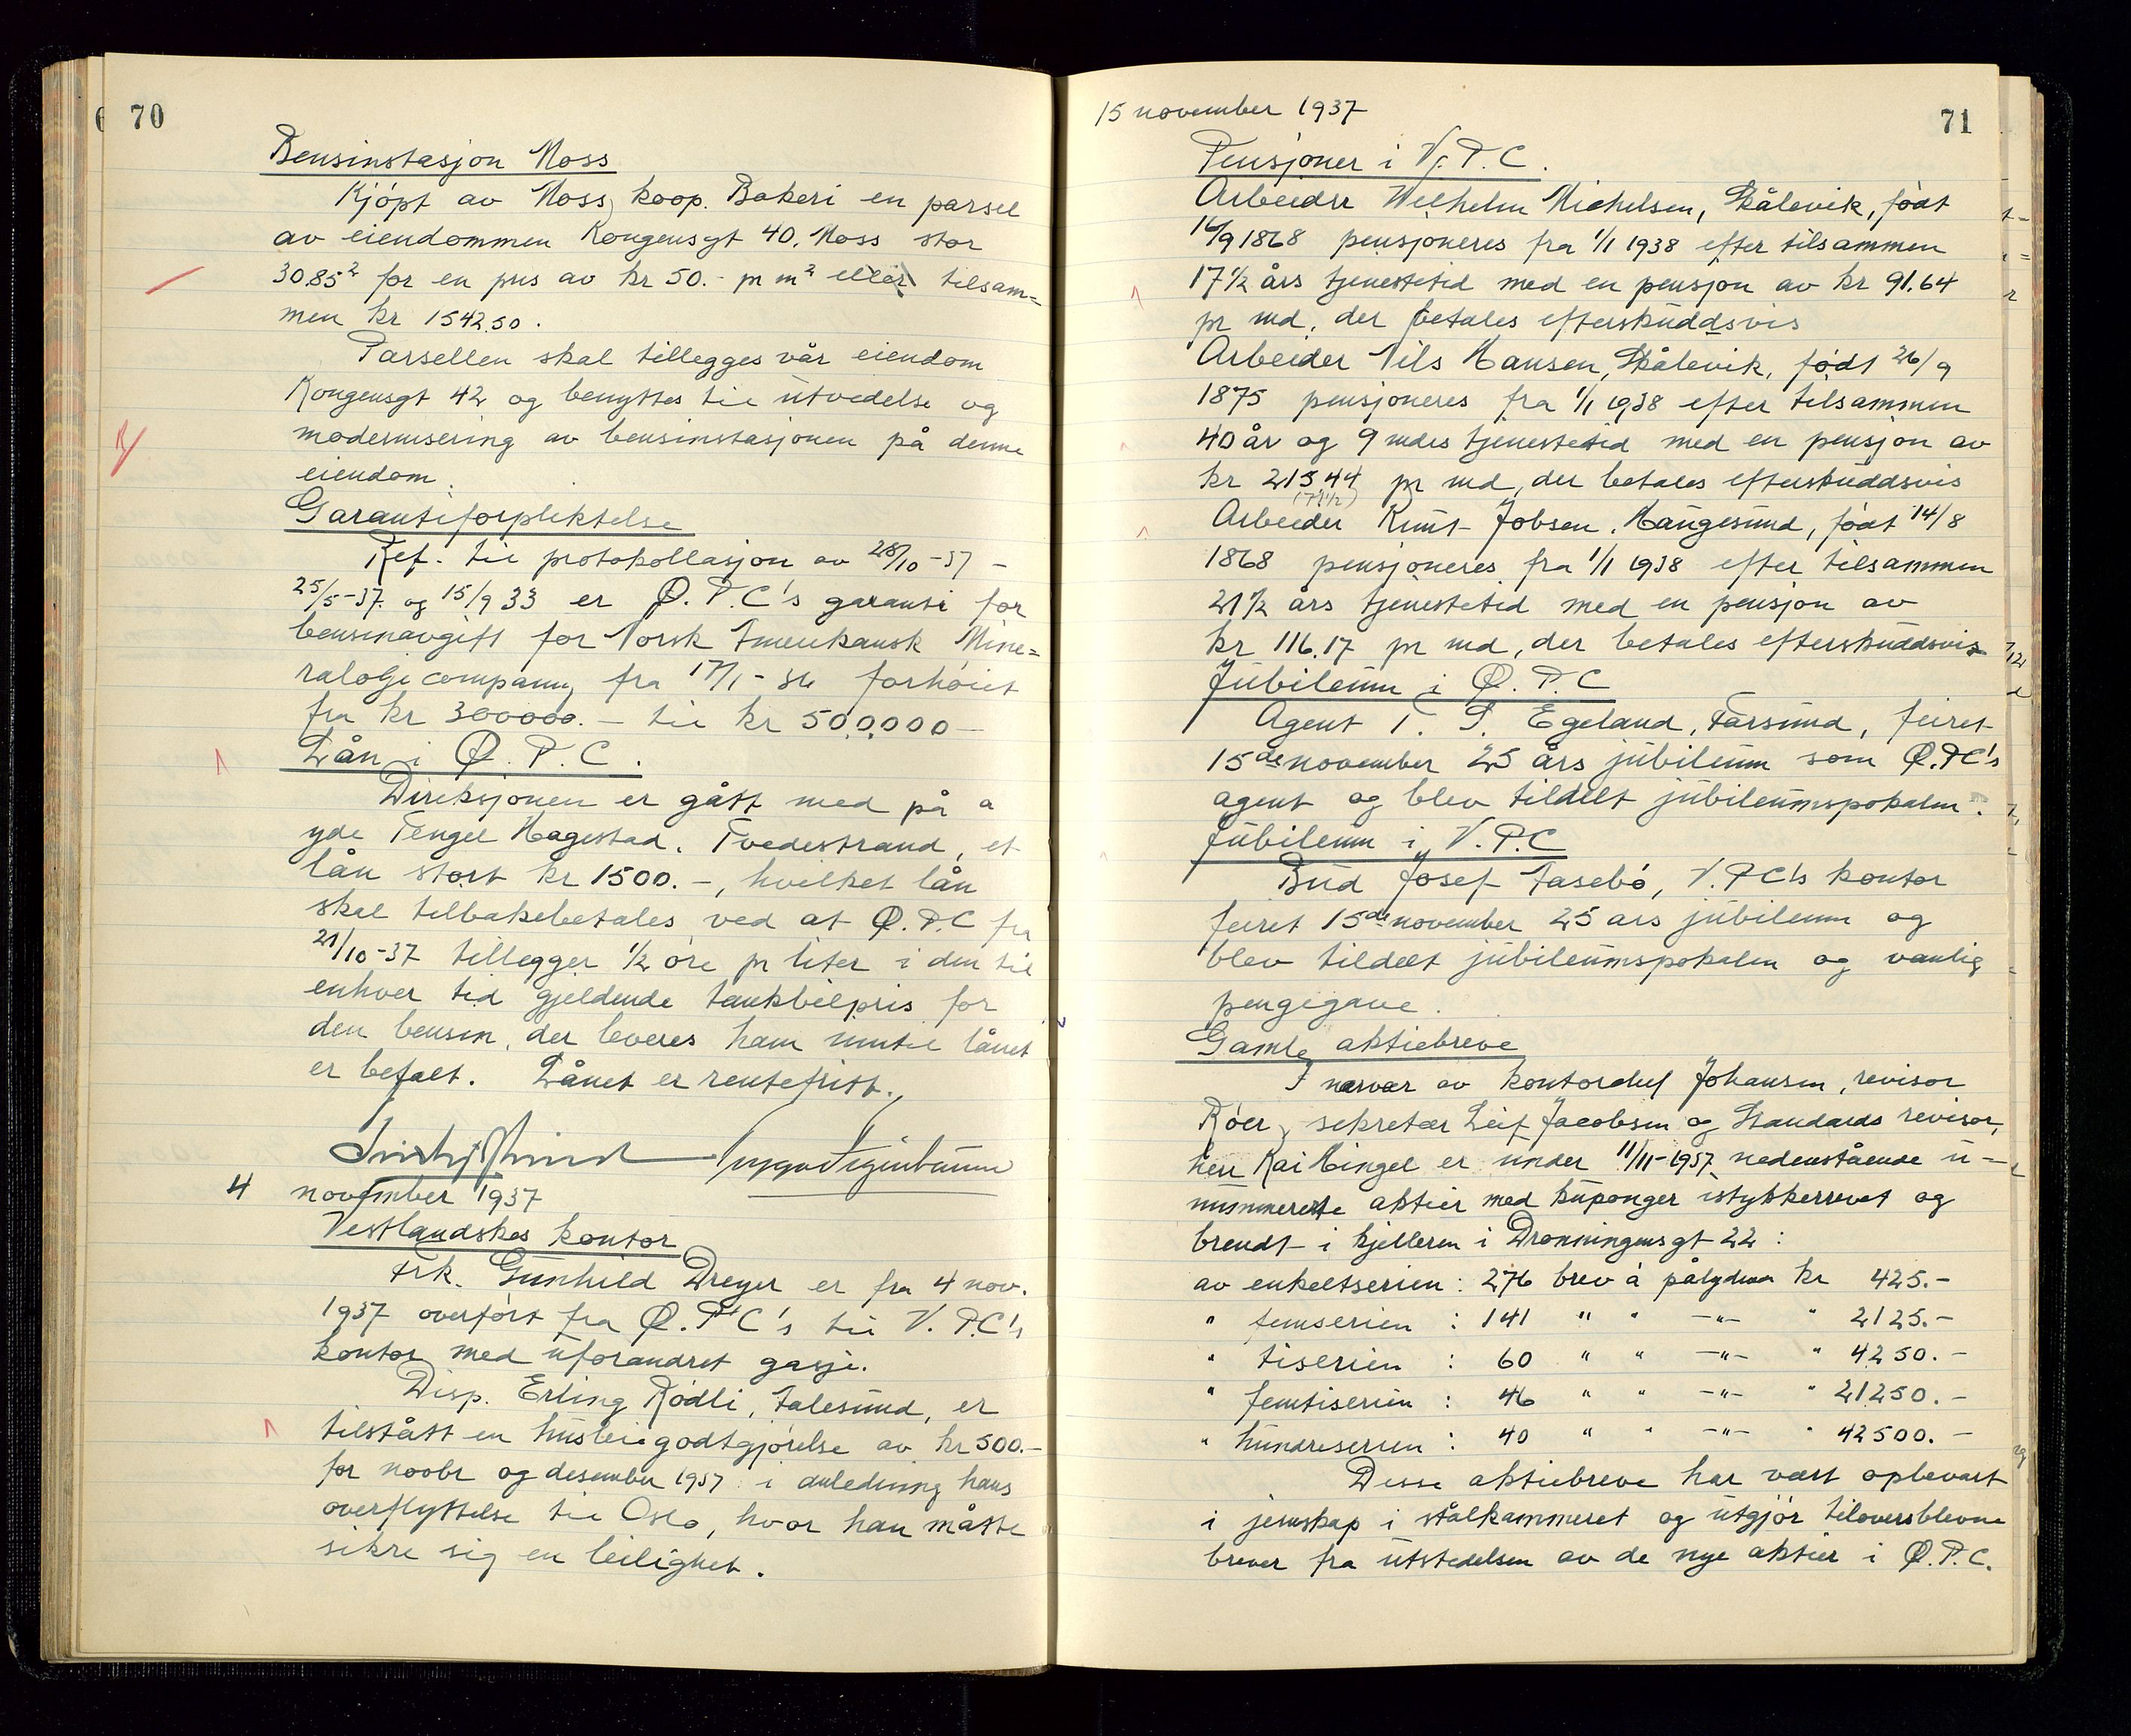 70
Bensinstasjon Moss
Kjøpt av Moss koop. Bakeri en parsel
av eiendommen Kongensgt 40. Moss stor
30.85² for en pris av kr 50.- pr m² eller tilsam=
men kr 1542.50.
Parsellen skal tillegges vår eiendom
Kongensgt 42 og benyttes til utvidelse og
modernisering av bensinstasjonen på denne
eiendom.
Garantiforpliktelse
Ref. til protokollasjon av 28/10-37 -
25/5-37. og 15/9 33 er Ø.P.C's garanti for
bensinavgift for Norsk Amerikansk Mine=
raloljecompany fra 17/1-36 forhøiet
fra kr 300000.- til kr 500.000-
Lån i Ø.P.C.
Direksjonen er gått med på a
yde Tengel Hagestad, Tvedestrand, et
lån stort kr 1500.-, hvilket lån
skal tilbakebetales ved at Ø.P.C fra
21/10-37 tillegger 1/2 øre pr liter i den til
enhver tid gjeldende tankbilpris for
den bensin, der leveres ham inntil lånet
er betalt. Lånet er rentefritt.
4 november 1937
Vestlandskes kontor
Frk. Gunhild Dreyer er fra 4 nov.
1937 overført fra Ø.P.C's til V.P.C's
kontor med uforandret gasje.
Disp. Erling Rødli, Aalesund, er
tilstått en husleiegodtgjørelse av kr 500.-
for novbr og desember 1937 i anledning hans
overflyttelse til Oslo, hvor han måtte
sikre sig en leilighet.
15 november 1937
71
Pensjoner i V.P.C.
Arbeider Wilhelm Michelsen, Skålevik, født
16/9 1868 pensjoneres fra 1/1 1938 efter tilsammen
17 1/2 års tjenestetid med en pensjon av kr 91.64
pr md, der betales efterskuddsvis
Arbeider Nils Hansen, Skålevik, født 26/9
1875 pensjoneres fra 1/1 1938 efter tilsammen
40 år og 9 mdrs tjenestetid med en pensjon av
kr 215.44 pr md, der betales efterskuddsvis
Arbeider Knut Jobsen, Haugesund, født 14/8
1868 pensjoneres fra 1/1 1938 efter tilsammen
21 1/2 års tjenestetid med en pensjon av
kr 116.17 pr md, der betales efterskuddsvis
Jubileum i Ø.P.C
Agent T. S. Egeland, Farsund, feiret
15de november 25 års jubileum som Ø.PC's
agent og blev tildelt jubileumspokalen.
Jubileum i V.P.C
Bud Josef Aasebø, V.PC's kontor
feiret 15de november 25 ars jubileum og
blev tildelt jubileumspokalen og vanlig
pengegave.
Gamle aktiebreve
I nærvær av kontorchef Johansen, revisor
Röer, sekretær Leif Jacobsen og Standards revisor,
herr Kai Hingel er under 11/11-1937 nedenstående u=
nummererte aktier med kuponger istykkerrevet og
brendt i kjelleren i Dronningensgt 22:
av enkeltserien: 276 brev à pålydende kr 425.-
" femserien : 141 " " -"- " 2125.-
" tiserien : 60 " " -"- " 4250.-
" femtiserien : 46 " " -"- " 21250.-
" hundreserien : 40 " " -"- " 42500.-
Disse aktiebreve har vært opbevart
i jernskap i stålkammeret og utgjør tiloversblevne
brever fra utstedelsen av de nye aktier i Ø.P.C.